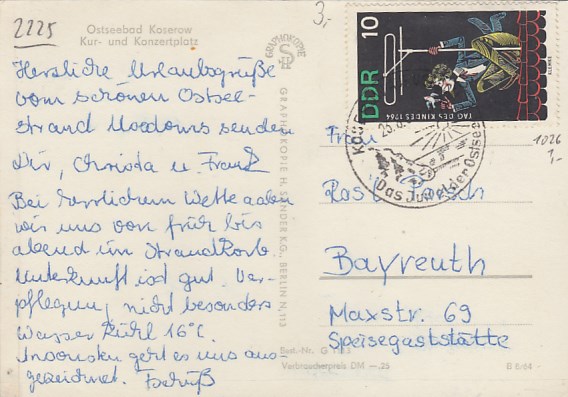 2225
3,-
Ostseebad Koserow
Kur- und Konzertplatz
GRAPHOKOPIE
Herzliche Urlaubsgrüße
vom schönen Ostsee-
strand Usedoms senden
Dir, Christa u. Frank
Bei herrlichem Wetter aalen
wir uns von früh bis
abend im Strandkorb
Unterkunft ist gut. Ver-
pflegung, nicht besonders
Wasser kühl 16°C.
Ansonsten geht es uns aus-
gezeichnet.
GRAPHOKOPIE H. SANDER KG., BERLIN N 113
DDR 10
TAG DES KINDES 1964
Das Juwel der Ostsee
1026
1,-
Bayreuth
Maxstr. 69
Speisegaststätte
Best.-Nr. G
Verbraucherpreis DM —.25
B 6/64